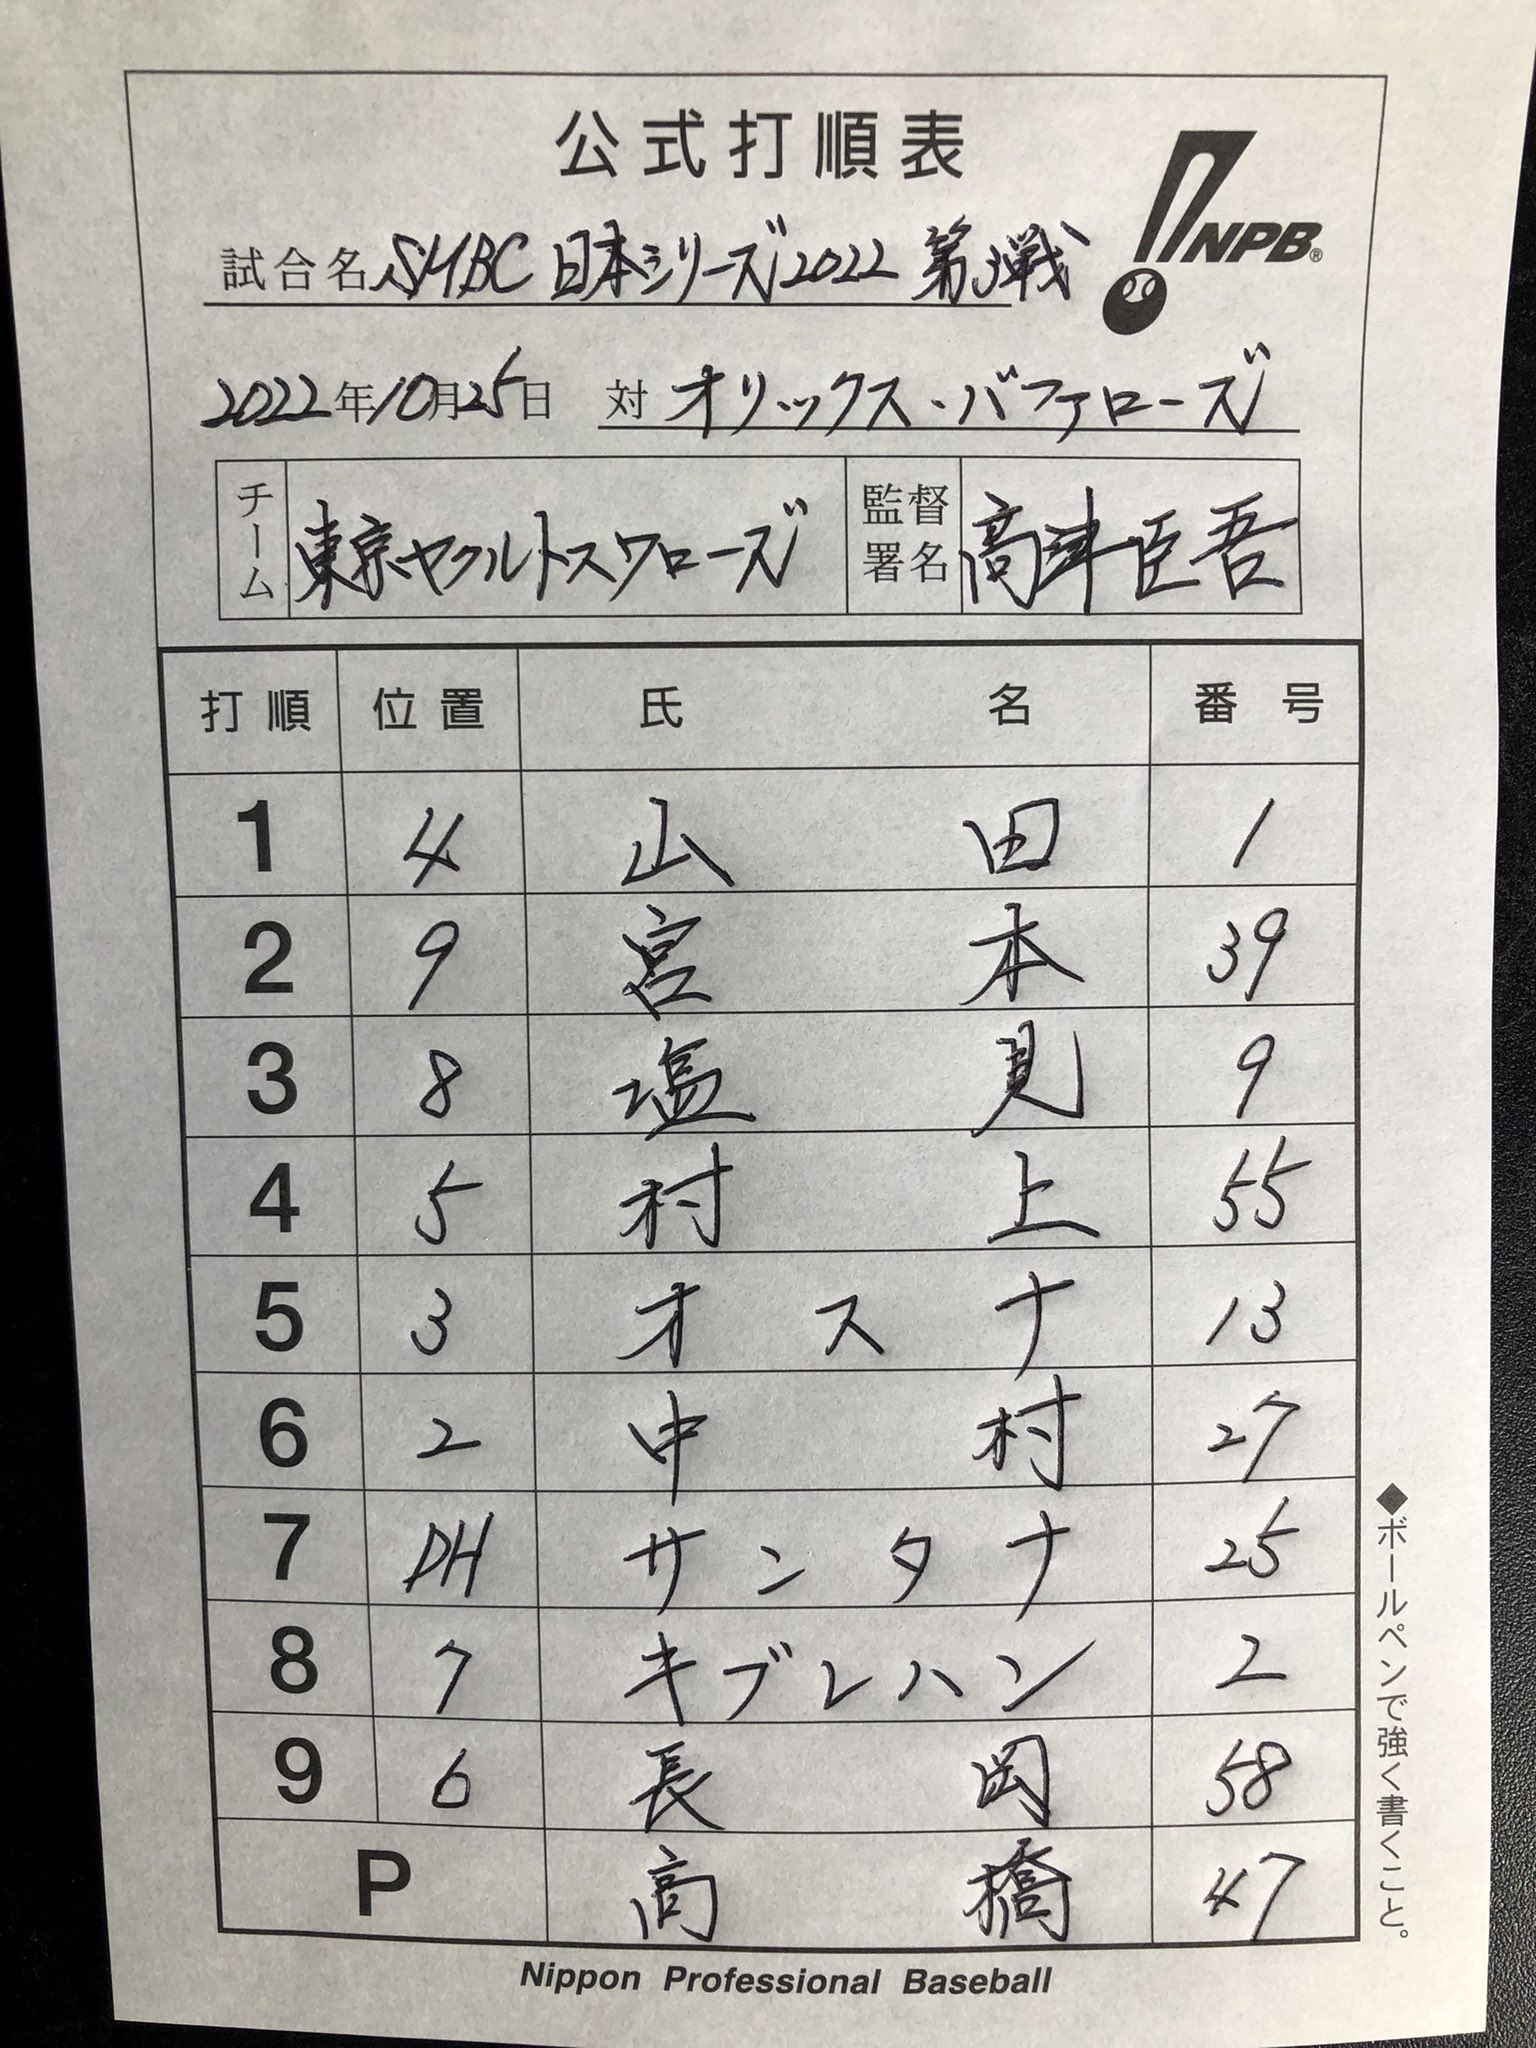 公式打順表
NPB®
試合名 SMBC 日本シリーズ2022 第3戦
2022年10月25日 対 オリックス・バファローズ
チーム 東京ヤクルトスワローズ 監督署名 高津臣吾
打順 位置 氏名 番号
1 4 山田 1
2 9 宮本 39
3 8 塩見 9
4 5 村上 55
5 3 オスナ 13
6 2 中村 27
7 DH サンタナ 25
8 7 キブレハン 2
9 6 長岡 58
P 高橋 47
◆ボールペンで強く書くこと。
Nippon Professional Baseball